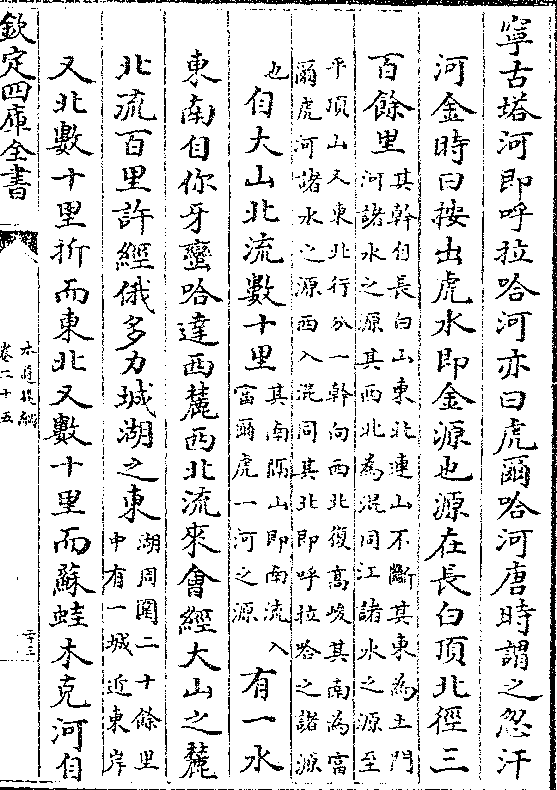 寧古塔河即呼拉哈河亦曰虎爾哈河唐時謂之忽汗
河金時曰按出虎水即金源也源在長白頂北徑三
百餘里
其幹自長白山東北連山不斷其東為土門
河諸水之源其西北為混同江諸水之源至
平頂山又東北行分一幹向西北復高峻其南為富
爾虎河諸水之源西入混同其北即呼拉哈之諸源
也
自大山北流數十里
其南隔山即南流入
富爾虎一河之源
有一水
東南自你牙蠻哈達西麓西北流來會經大山之麓
北流百里許經俄多力城湖之東
湖周圍二十餘里
中有一城近東岸
又北數十里折而東北又數十里而蘇蛙木克河自
欽定四庫全書
水道提綱
卷二十五